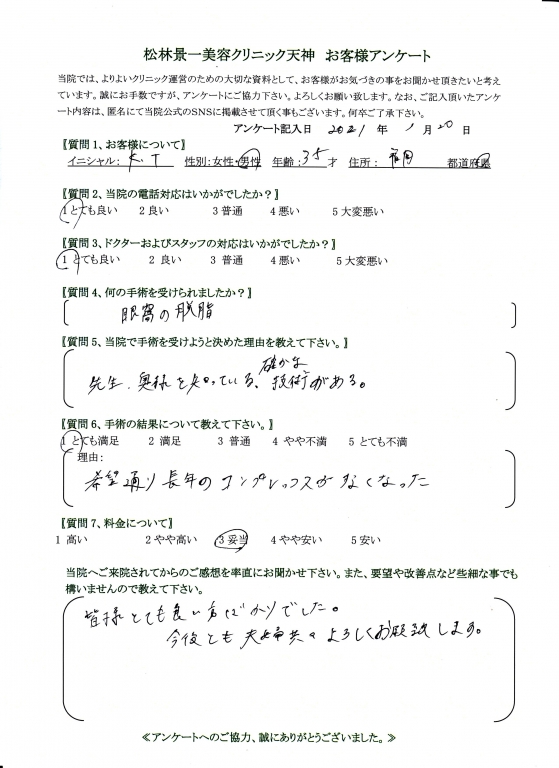 松林景一美容クリニック天神 お客様アンケート
当院では、よりよいクリニック運営のための大切な資料として、お客様がお気づきの事をお聞かせ頂きたいと考え
ています。誠にお手数ですが、アンケートにご協力下さい。よろしくお願い致します。なお、ご記入頂いたアンケ
ート内容は、匿名にて当院公式のSNSに掲載させて頂く事もございます。何卒ご了承下さい。
アンケート記入日 2021 年 1 月 20 日
【質問1、お客様について】
イニシャル: K.T 性別:女性・男性 年齢:35才 住所: 福岡 都道府県
【質問2、当院の電話対応はいかがでしたか?】
1 とても良い 2 良い 3 普通 4 悪い 5 大変悪い
【質問3、ドクターおよびスタッフの対応はいかがでしたか?】
1 とても良い 2 良い 3 普通 4 悪い 5 大変悪い
【質問4、何の手術を受けられましたか?】
眼窩の脱脂
【質問5、当院で手術を受けようと決めた理由を教えて下さい。】
先生、奥様を知っている、確かな技術がある。
【質問6、手術の結果について教えて下さい。】
1 とても満足 2 満足 3 普通 4 やや不満 5 とても不満
理由:
希望通り長年のコンプレックスがなくなった
【質問7、料金について】
1 高い 2 やや高い 3 妥当 4 やや安い 5 安い
当院へご来院されてからのご感想を率直にお聞かせ下さい。また、要望や改善点など些細な事でも
構いませんので教えて下さい。
皆様とても良い方ばかりでした。
今後とも夫婦共々よろしくお願い致します。
≪アンケートへのご協力、誠にありがとうございました。≫